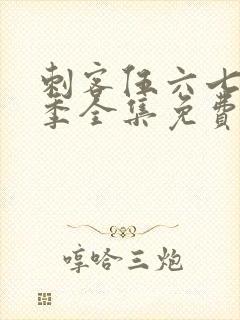 刺客伍六七
季全集免費
哼哈三炮